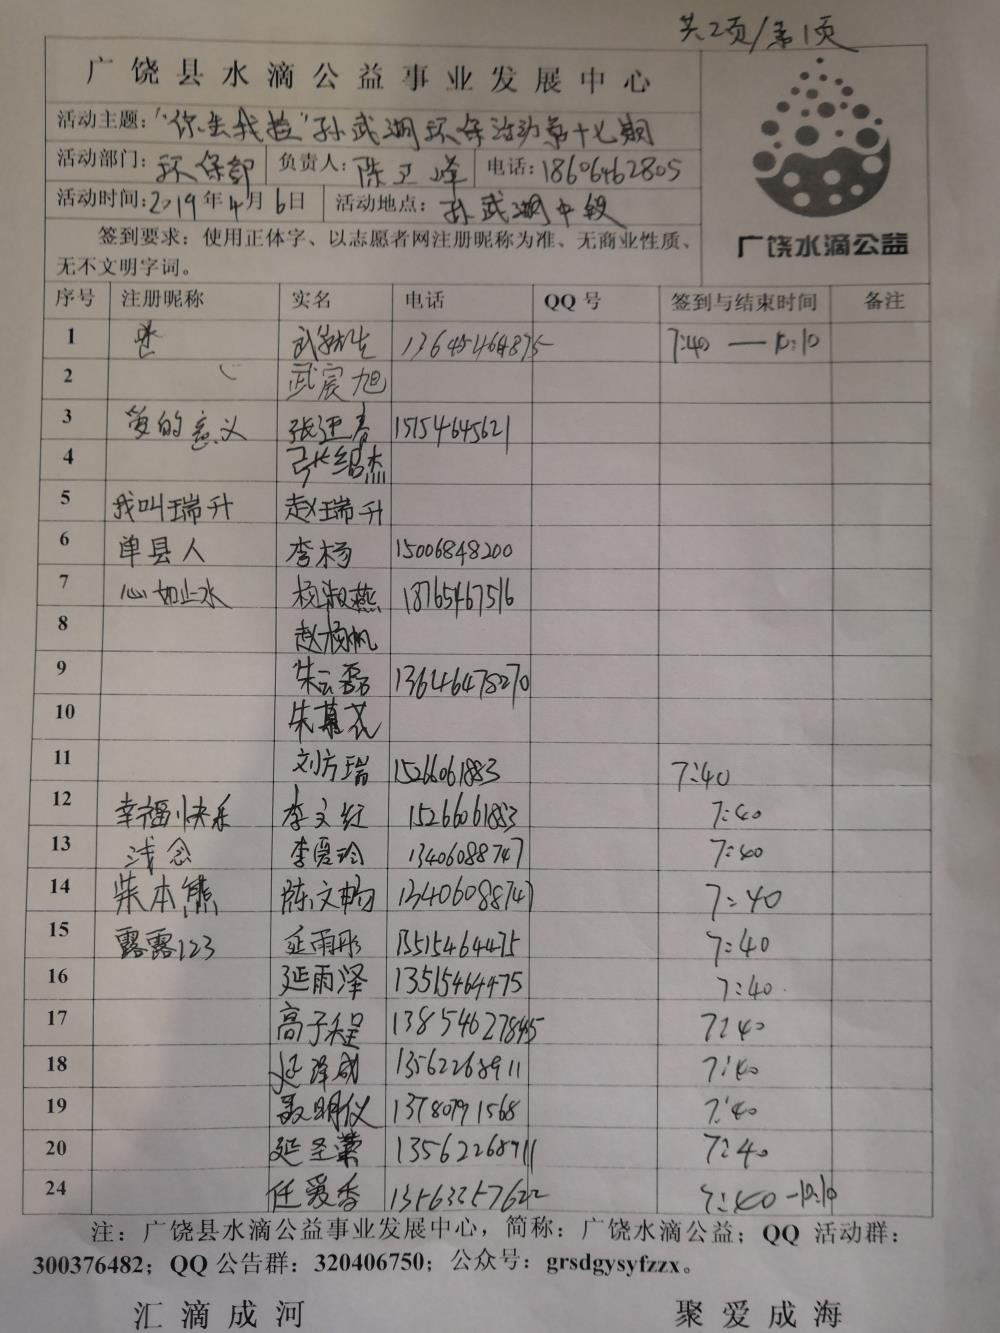 共2页/第1页
广饶县水滴公益事业发展中心
活动主题：“你丢我捡”孙武湖环保活动第十七期
活动部门：环保部 负责人：陈卫峰 电话：18606462805
活动时间：2019年4月6日 活动地点：孙武湖中段
签到要求：使用正体字、以志愿者网注册昵称为准、无商业性质、
无不文明字词。
广饶水滴公益
序号 注册昵称 实名 电话 QQ号 签到与结束时间 备注
1 13645464875 7:40 — 10:10
2 武宸旭
3 爱的意义 张迎春 15154645621
4 张绍杰
5 我叫瑞升 赵瑞升
6 单县人 李杨 15006848200
7 心如止水 杨淑燕 18765467516
8 赵杨帆
9 朱云磊 13646478270
10 朱墓花
11 刘方瑞 15266061883 7:40
12 幸福快乐 李文红 15266061883 7:40
13 浅念 李爱玲 13406088747 7:40
14 柴本熊 陈文畅 13406088747 7:40
15 露露123 延雨彤 13515464475 7:40
16 延雨泽 13515464475 7:40
17 高子程 13854627845 7:40
18 延泽成 13562268911 7:40
19 聂明仪 13780791568 7:40
20 延圣 13562268911 7:40
24 任爱香 13563257622 7:40 -10:10
注：广饶县水滴公益事业发展中心，简称：广饶水滴公益；QQ 活动群：
300376482；QQ公告群：320406750；公众号：grsdgysyfzzx。
汇滴成河 聚爱成海